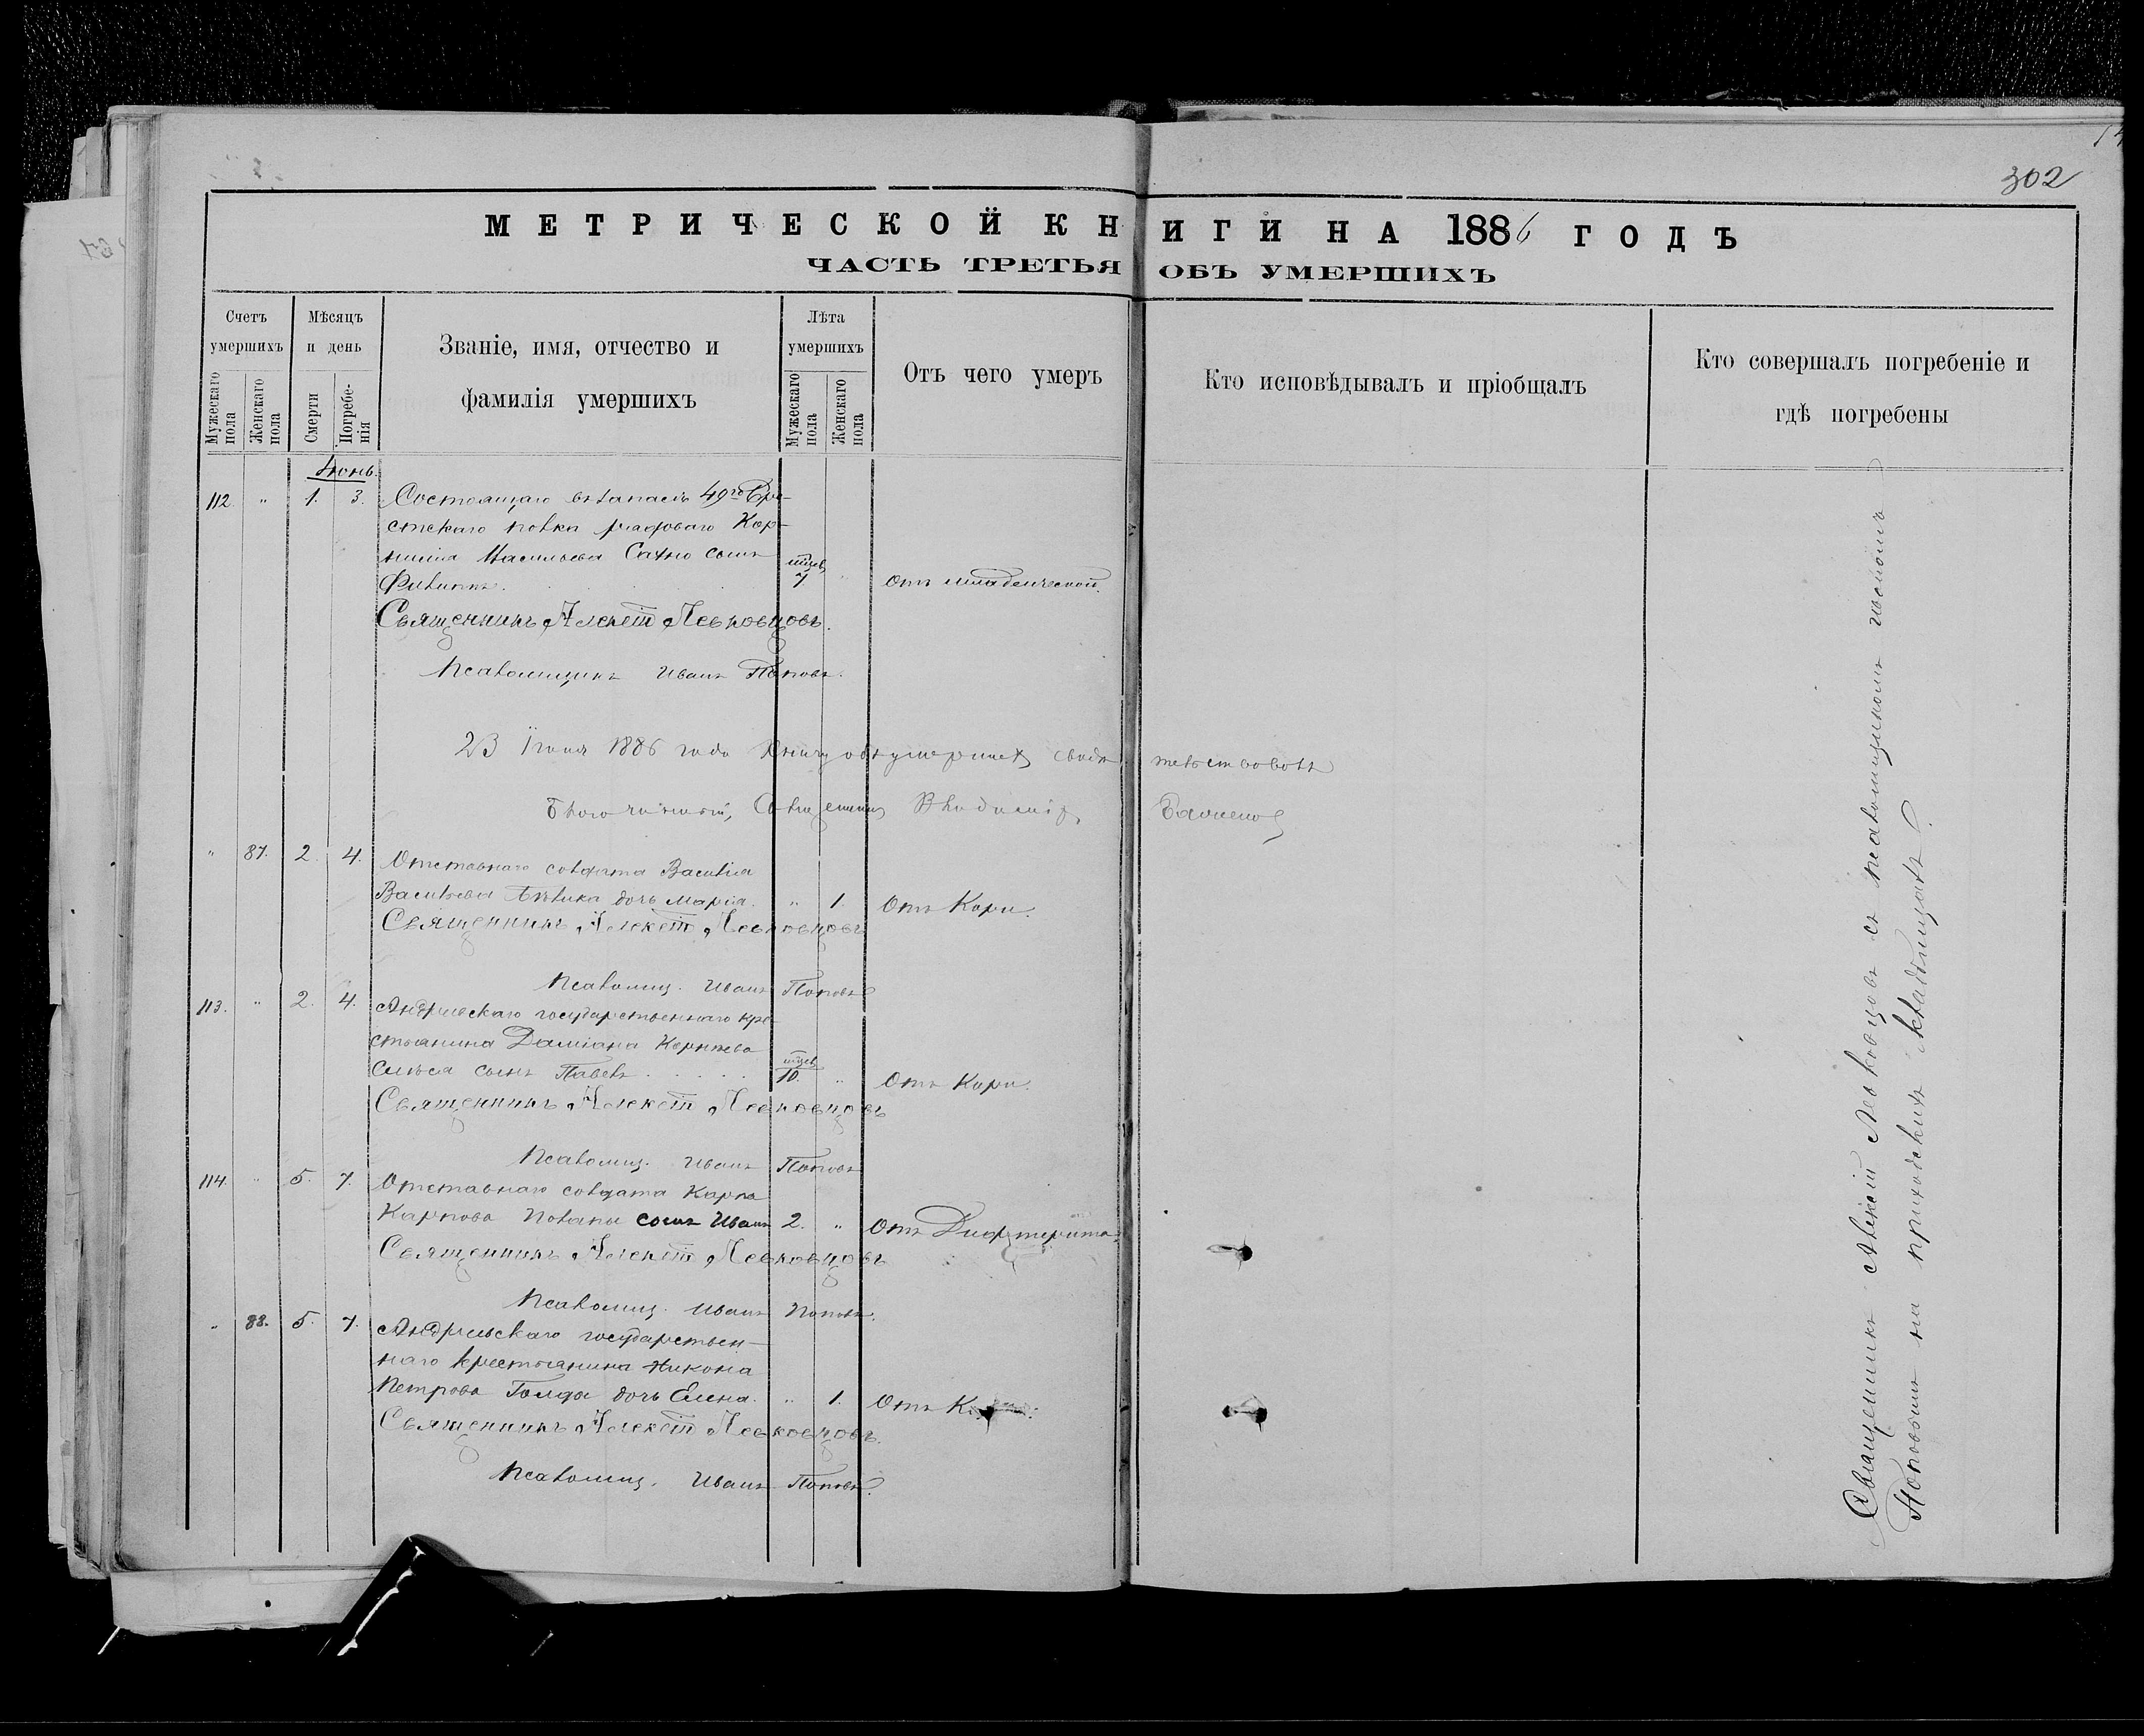 302
МЕТРИЧЕСКОЙ КНИГИ НА 1886 ГОДЪ
ЧАСТЬ ТРЕТЬЯ ОБЪ УМЕРШИХЪ
Счетъ умершихъ
Мужескаго пола
Женскаго пола
Мѣсяцъ и день
Смерти
Погребенія
Званіе, имя, отчество и фамилія умершихъ
Лѣта умершихъ
Мужескаго пола
Женскаго пола
Отъ чего умеръ
Кто исповѣдывалъ и пріобщалъ
Кто совершалъ погребеніе и гдѣ погребены
Іюнь.
112 " 1. 3. Состоящаго въ запасѣ 49го Бре-
стскаго полка рядоваго Кор-
нилія Васильева Сахно сынъ мцев
Филиппъ. 7 " отъ младенческой.
Священникъ Алексій Левковцовъ.
Псаломщикъ Иванъ Поповъ.
23 Іюня 1886 года Книгу объ умершихъ свидѣтельствовалъ
Благочинный, Священникъ Владиміръ
" 87. 2. 4. Отставнаго солдата Василія
Васильева дочь Марія. " 1. Отъ Кори.
Священникъ Алексій Левковцовъ
Псаломщ. Иванъ Поповъ
113. " 2. 4. Андреевскаго государственнаго кре-
стьянина Даміана Корнѣева мцев
сынъ Павелъ 10. " Отъ Кори.
Священникъ Алексій Левковцовъ
Псаломщ. Иванъ Поповъ
114. " 5. 7. Отставнаго солдата Карпа
Карпова сынъ Иванъ 2. " Отъ Дифтерита.
Священникъ Алексій Левковцовъ
Псаломщ. Иванъ Поповъ.
" 88. 5. 7. Андреевскаго государствен-
наго крестьянина Никона
Петрова дочь Елена. " 1. Отъ
Священникъ Алексій Левковцовъ.
Псаломщ. Иванъ Поповъ.
Священникъ Алексій Левковцовъ съ псаломщикомъ
Поповымъ на приходскихъ кладбищахъ.